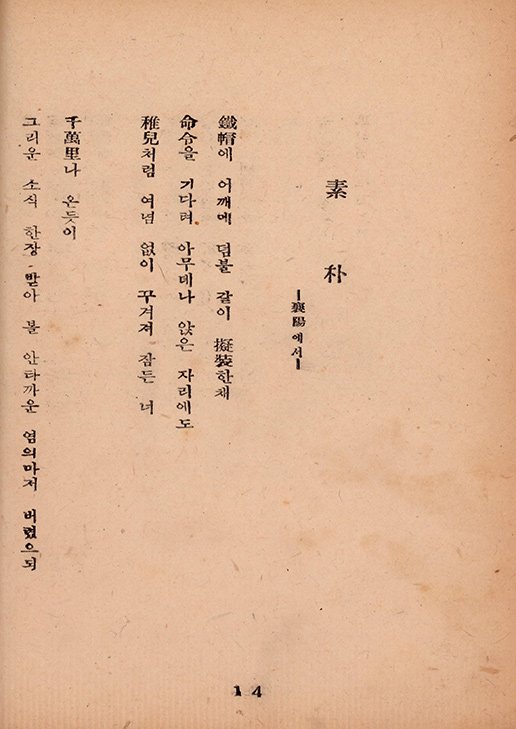 素朴
ー襄陽에서ー
鐵帽에 어깨에 덤불 같이 擬裝한채
命令을 기다려 아무데나 앉은 자리에도
稚兒처럼 여념 없이 꾸겨져 잠든 너
千萬里나 온듯이
그리운 소식 한장 받아 볼 안타까운 염의마저 버렸으되
14